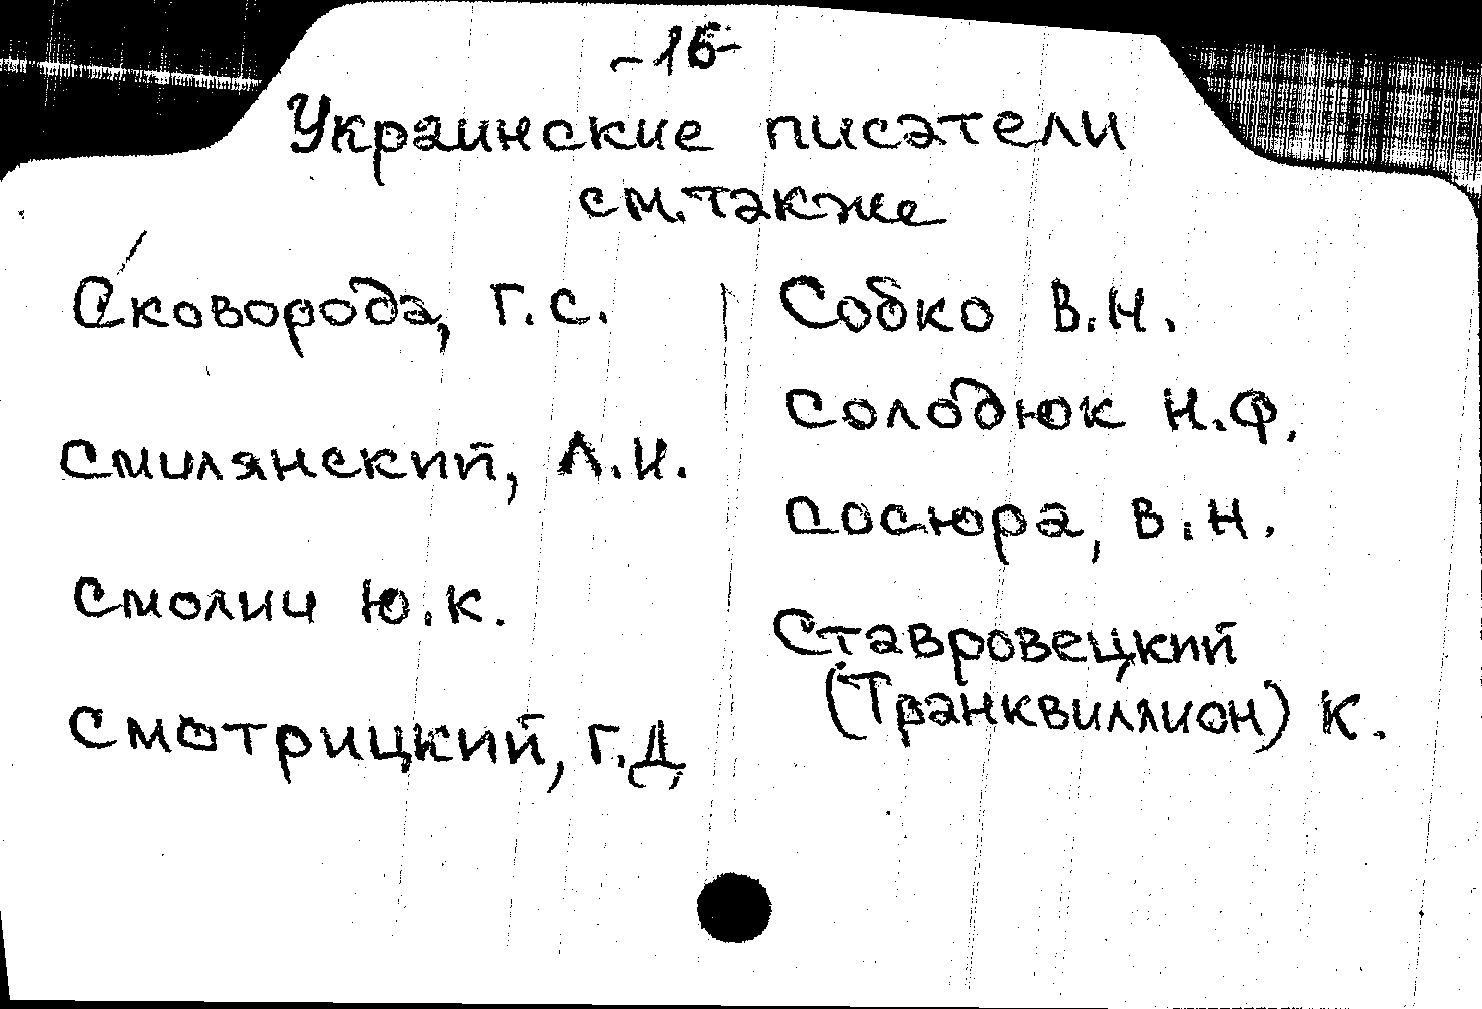 -16-
Украинские писатели
см. также
Сковорода, Г.С.
Смилянский, Л.И.
Смолич Ю.К.
Смотрицкий, Г.Д
Собко В.Н.
Солодюк Н.Ф.
Сосюра, В.Н.
Ставровецкий
(Транквиллион) К.